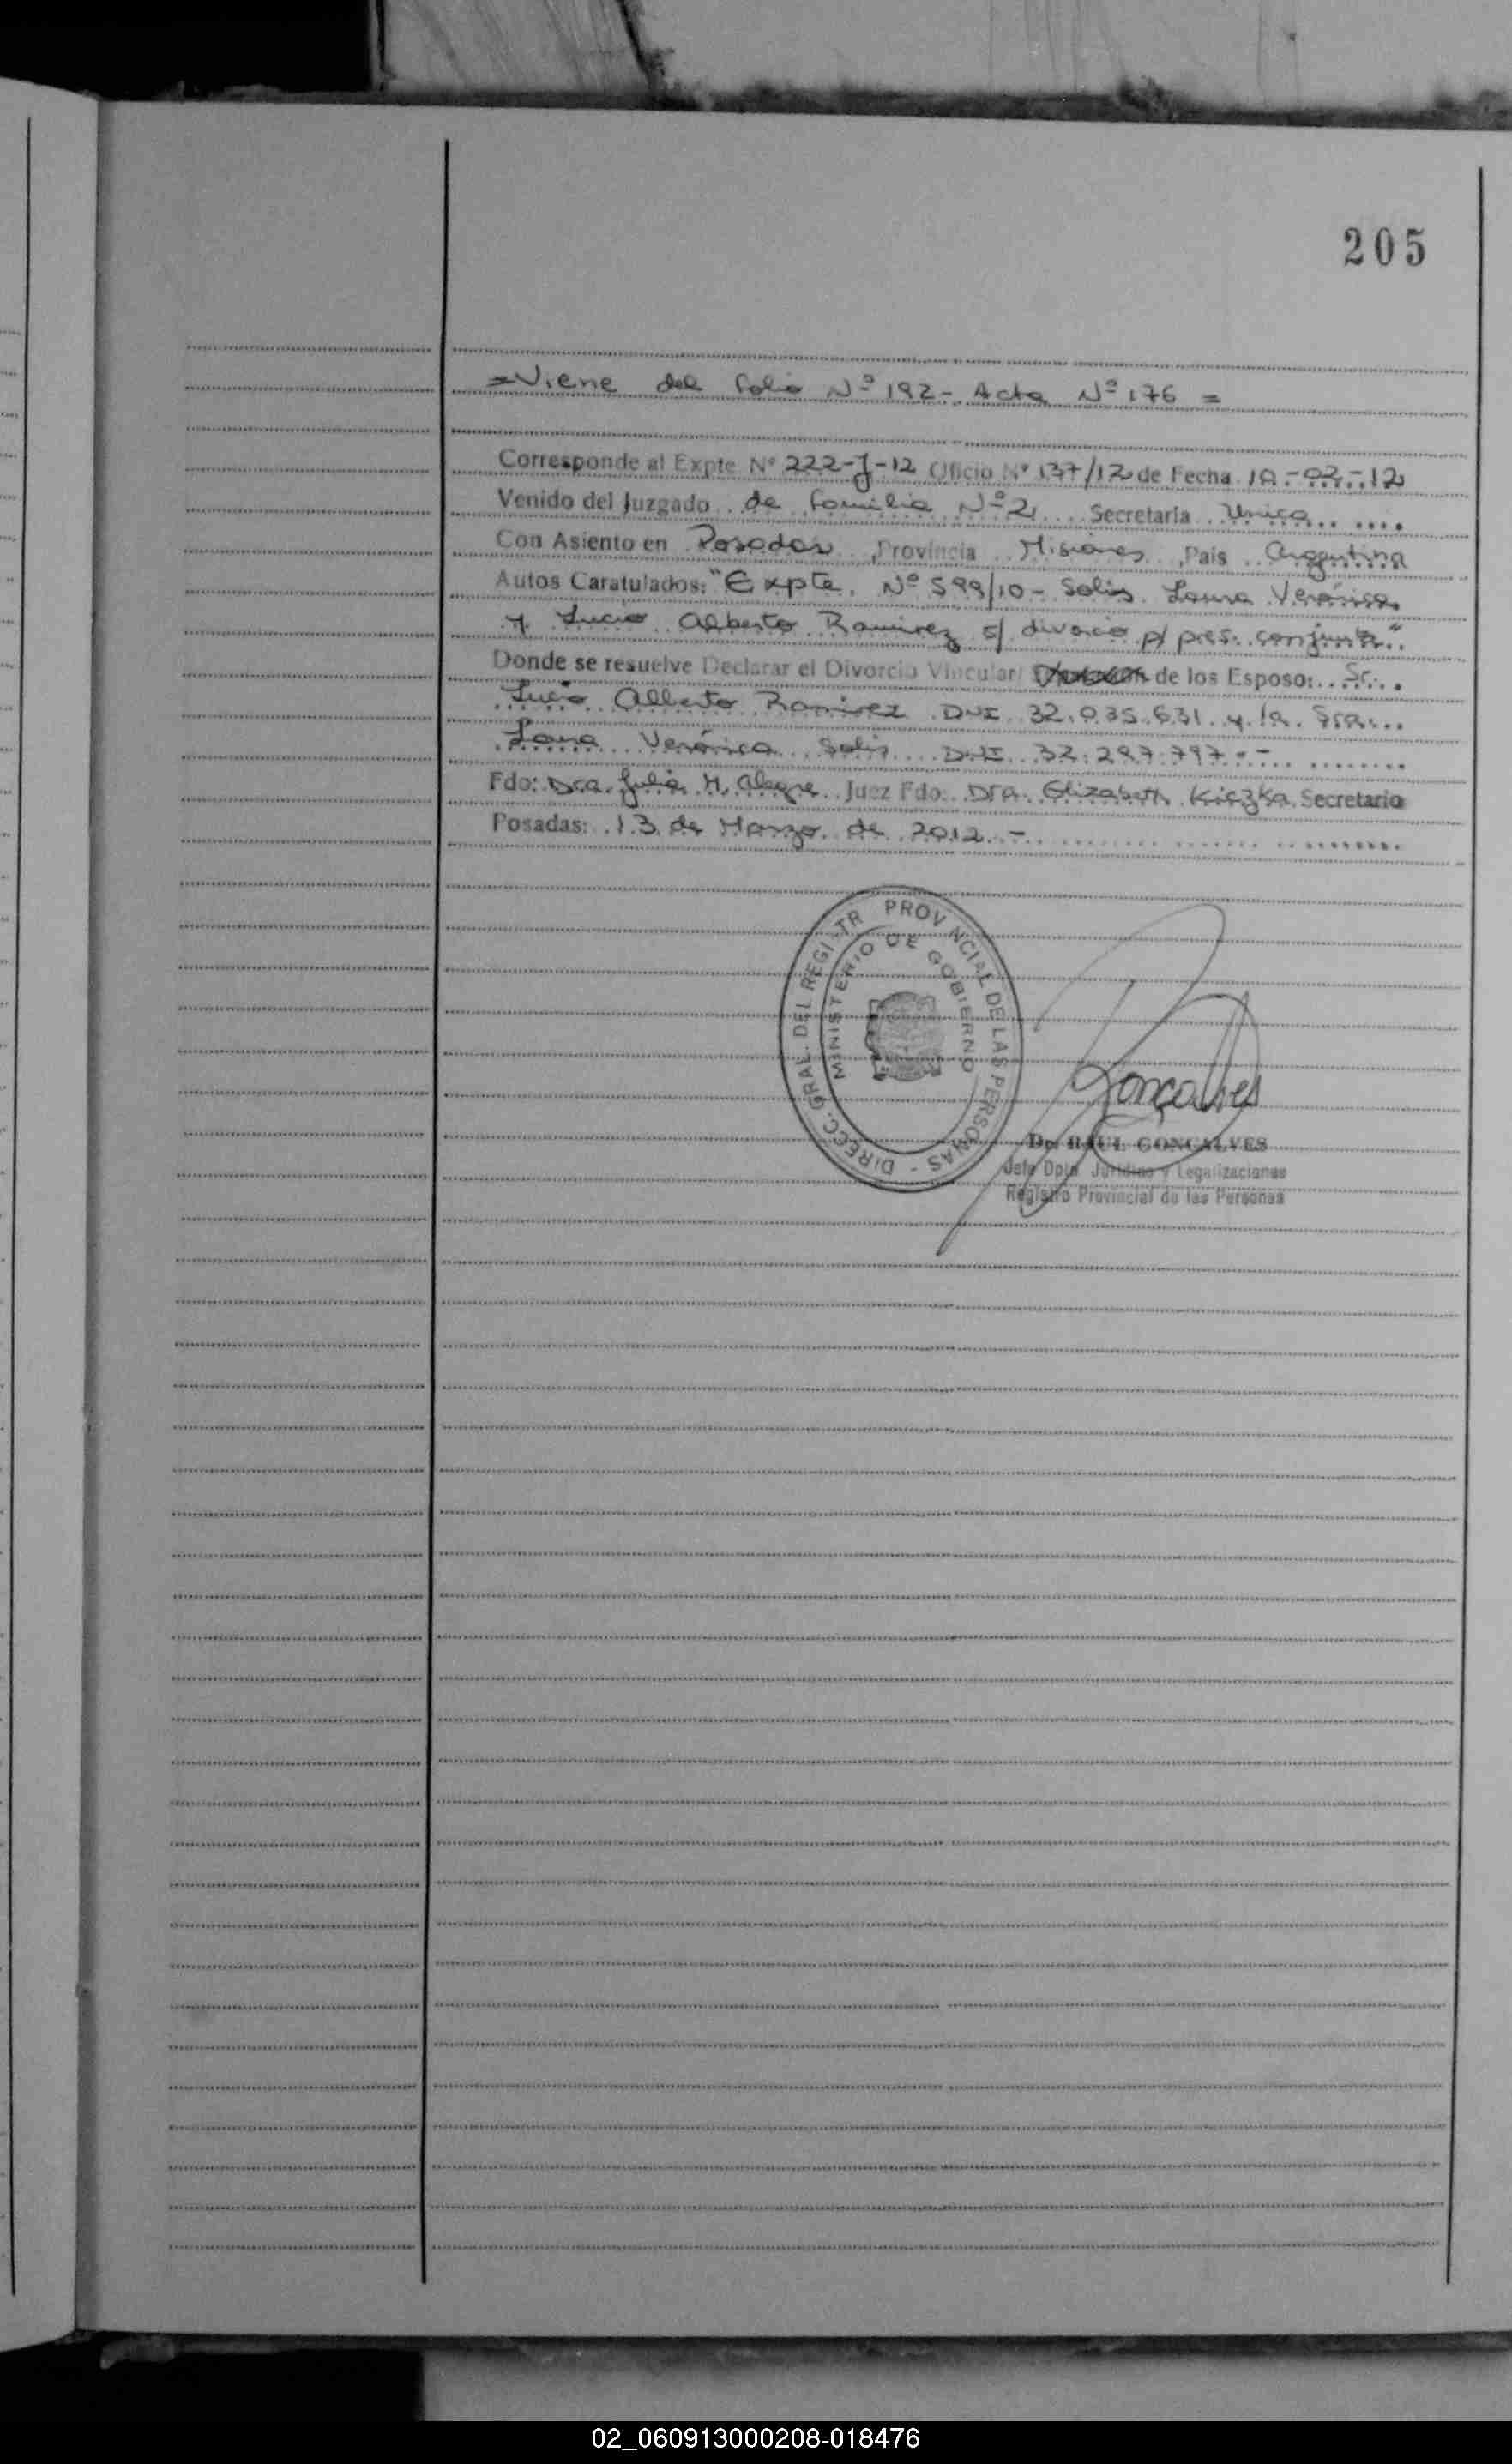 205
=Viene del folio Nº 192- Acta Nº 176 =
Corresponde al Expte Nº 222-J-12 Oficio Nº 137/12 de Fecha 10-02-12
Venido del Juzgado de familia Nº 2 Secretaría Unica
Con Asiento en Posadas, Provincia Misiones, Pais Argentina
Autos Caratulados: "Expte. Nº 599/10- Solis Laura Verónica
y Lucio Alberto Ramirez s/ divorcio p/ pres. conjunta"
Donde se resuelve Declarar el Divorcio Vincular/ de los Esposo: Sr.
Lucio Alberto Ramirez DNI 32.035.631 y la Sra.
Laura Verónica Solis DNI 32.297.797.-
Fdo: Dra. Julia H. Alegre Juez Fdo: Dra. Elizabeth Kiczka Secretario
Posadas: 13 de Marzo de 2012.-
DIRECC. GRAL. DEL REGISTR PROVINCIAL DE LAS PERSONAS -
MINISTERIO DE GOBIERNO
Goncalves
Dr. RAUL GONCALVES
Jefe Dpto. Jurídico y Legalizaciones
Registro Provincial de las Personas
02_060913000208-018476